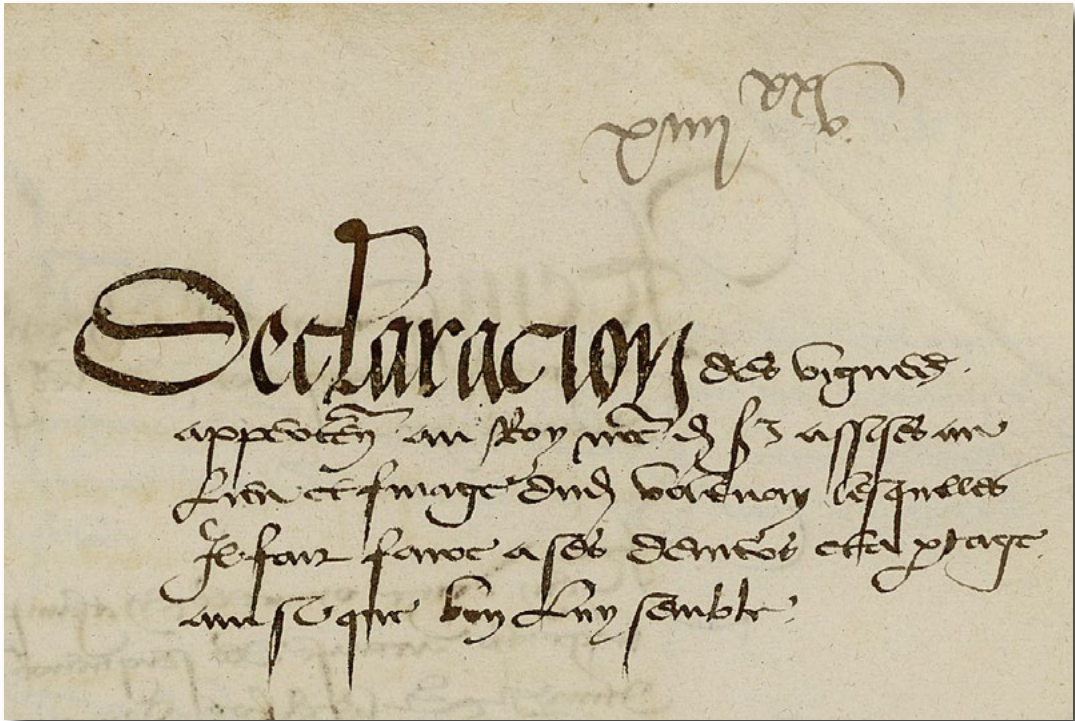 Declaracion des vignes
apparten au Roy nre d s assises au
lieu et finage dud volenay lesquelles
Il fait faire a ses deniers et a ptage
ainsi que bon luy semble